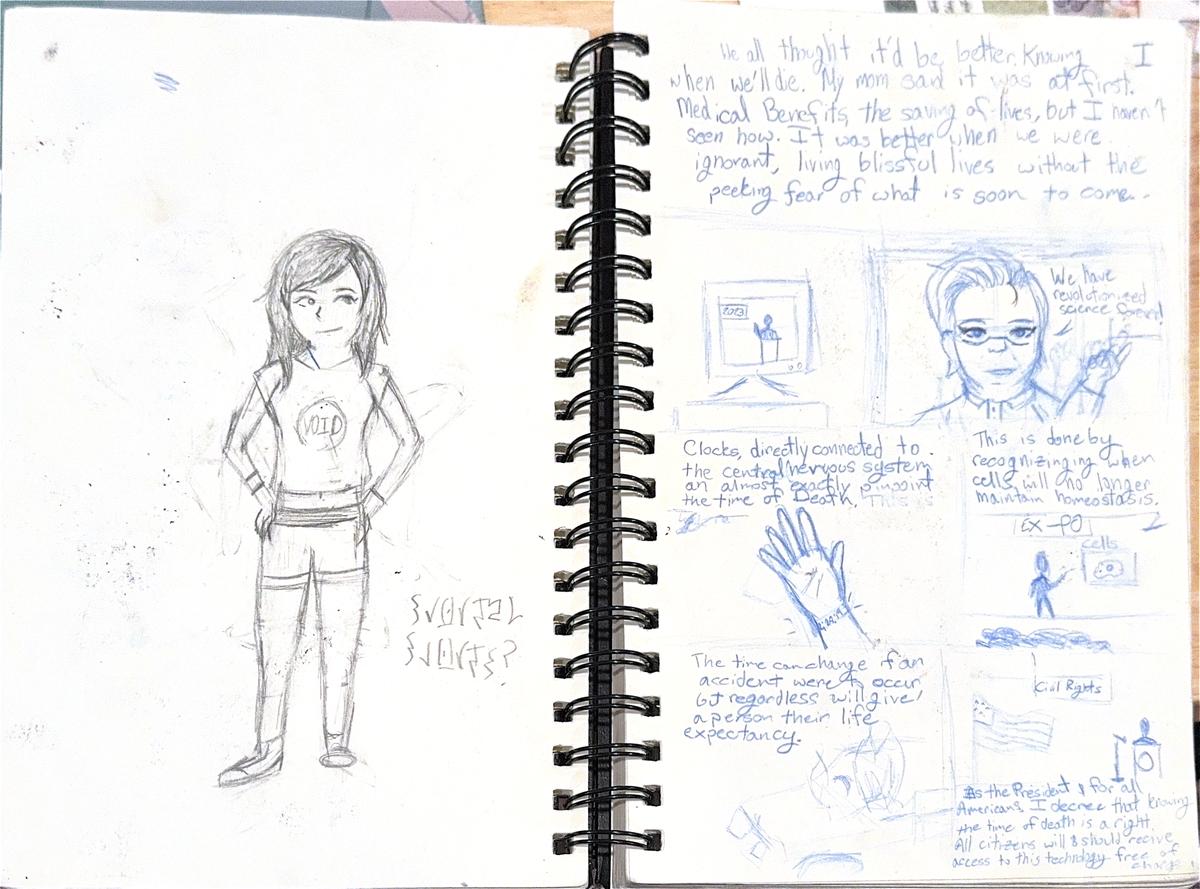 VOID
I
We all thought it'd be better. Knowing
when we'll die. My mom said it was at first.
Medical Benefits, the saving of lives, but I haven't
seen how. It was better when we were
ignorant, living blissful lives without the
peeking fear of what is soon to come.
2023
We have
revolutionized
science forever!
Clocks, directly connected to
the central nervous system
an almost exactly pinpoint
the time of Death. This is
This is done by
recognizinging when
cells will no longer
maintain homeostasis.
EX-PO
cells
The time can change if an
accident were to occur
but regardless will give
a person their life
expectancy.
Civil Rights
As the President & for all
Americans, I decree that knowing
the time of death is a right.
All citizens will & should recive
access to this technology free of
charge!